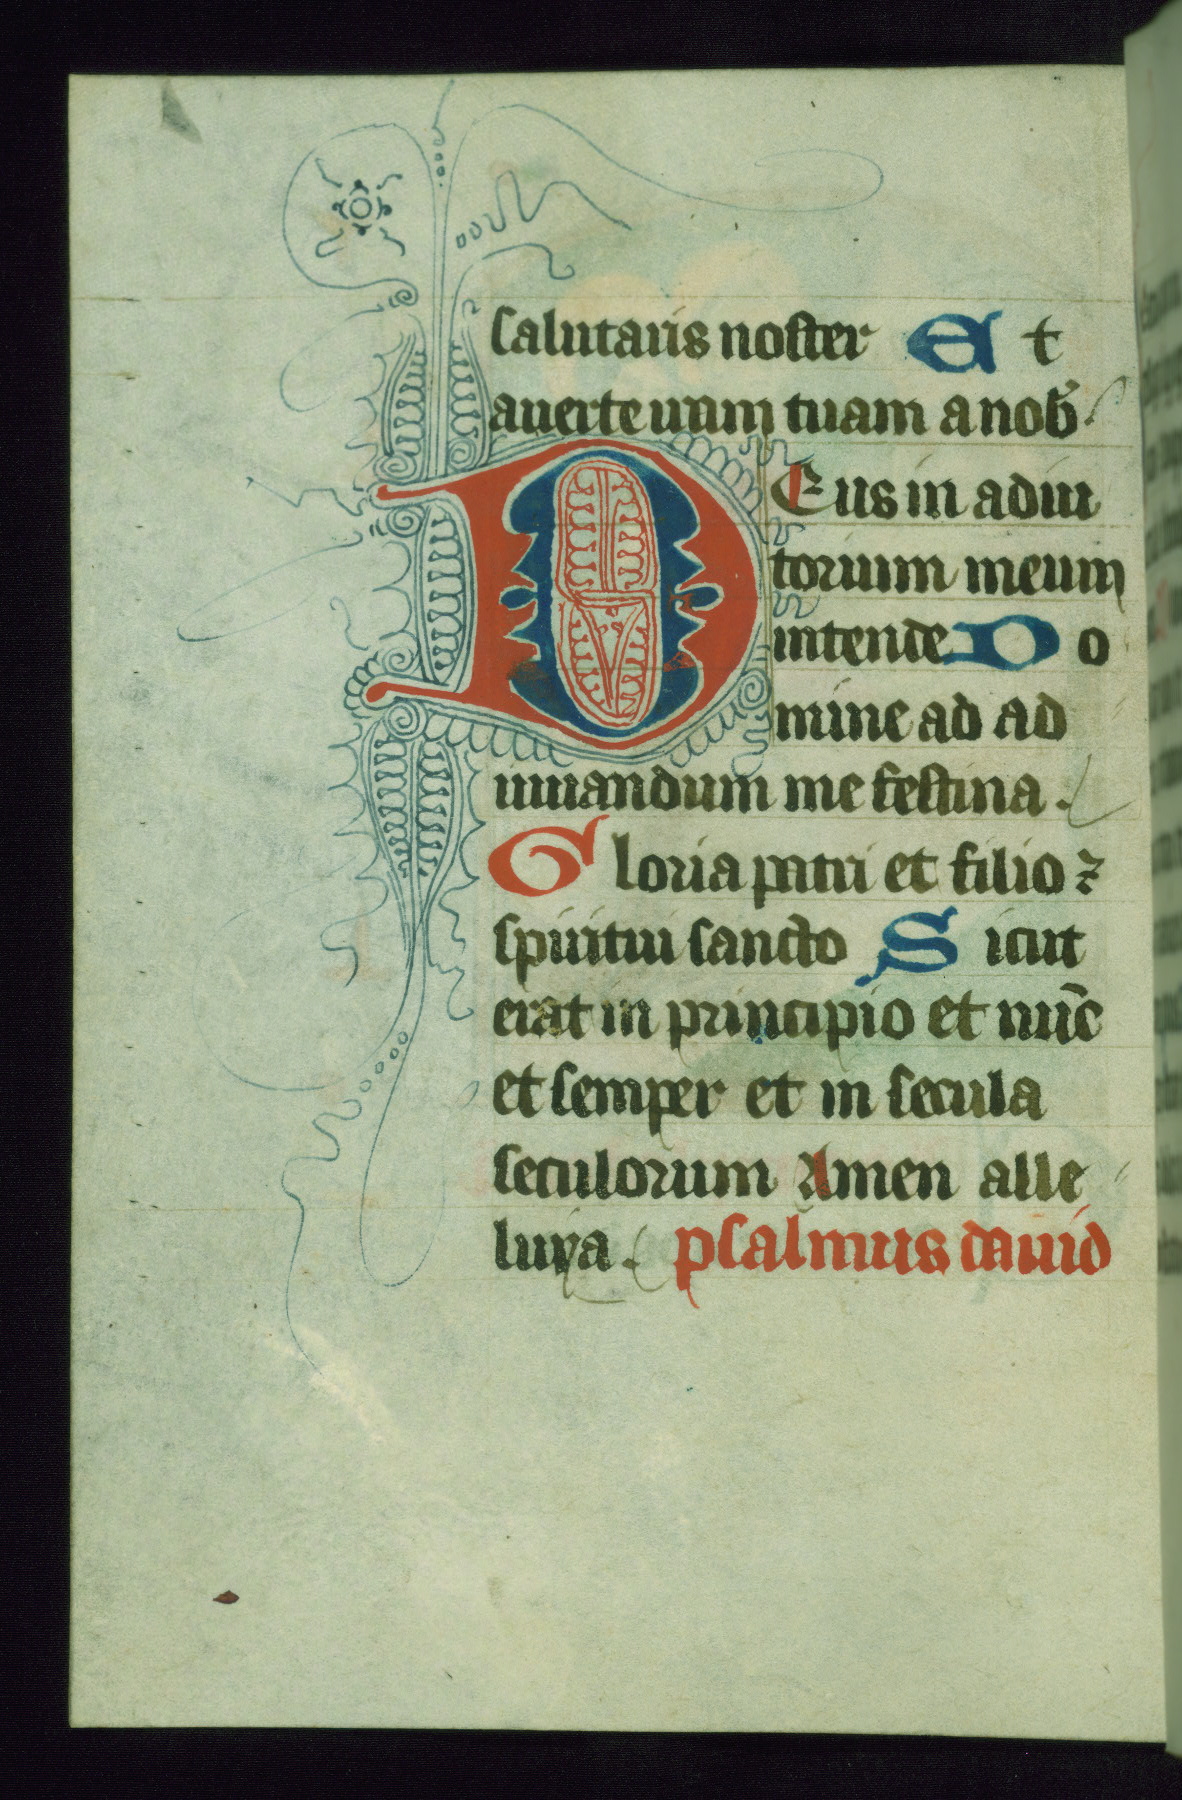 salutaris noster Et
auerte iram tuam a nob
DEus in adiu
torium meum
intende Do
mine ad ad
iuuandum me festina .
Gloria patri et filio ⁊
spiritui sancto Sicut
erat in principio et nūc
et semper et in secula
seculorum Amen alle
luya . psalmus dauid